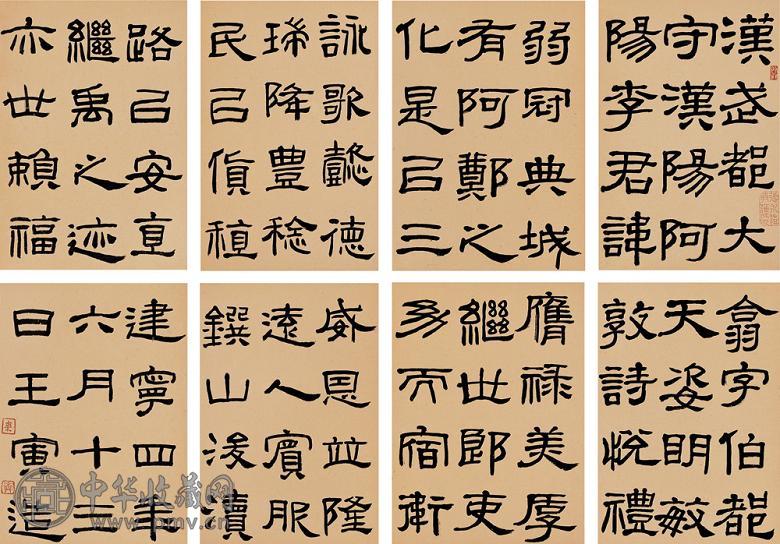 漢武都大
守漢陽阿
陽李君諱
翕字伯都
天姿明敏
敦詩悅禮
膺祿美厚
繼世郎吏
幼而宿衛
弱冠典城
有阿鄭之
化是以三
詠歌懿德
瑞降豐稔
民以貨稙
威恩竝隆
遠人賓服
鐉山浚瀆
路以安直
繼禹之迹
亦世賴福
建寧四年
六月十三
日壬寅造
中华收藏网
www.pmv.cn